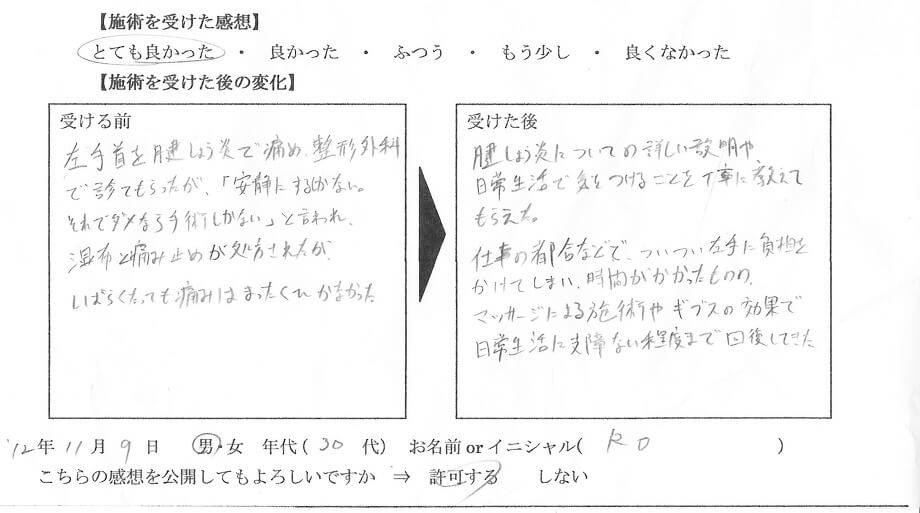 【施術を受けた感想】
とても良かった ・ 良かった ・ ふつう ・ もう少し ・ 良くなかった
【施術を受けた後の変化】
受ける前
左手首を腱しょう炎で痛め、整形外科
で診てもらったが、「安静にするしかない。
それでダメなら手術しかない」と言われ、
湿布と痛み止めが処方されたが、
しばらくたっても痛みはまったくひかなかった
受けた後
腱しょう炎についての詳しい説明や
日常生活で気をつけることを丁寧に教えて
もらえた。
仕事の都合などで、ついつい左手に負担を
かけてしまい、時間がかかったものの、
マッサージによる施術やギプスの効果で
日常生活に支障ない程度まで回復してきた
'12年 11月 9日 男・女 年代(30代) お名前 or イニシャル( K O )
こちらの感想を公開してもよろしいですか ⇒ 許可する しない